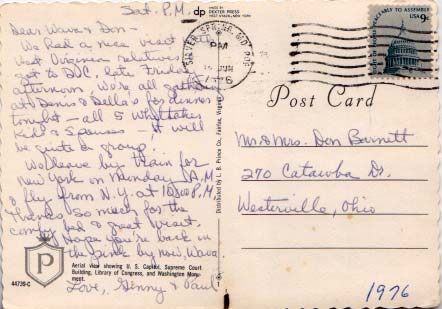 Sat. P.M.
Dear Wava & Don-
We had a nice visit with
West Virginia relatives
got to D.C. late Friday
afternoon. We're all gathering
at Denis & Della's for dinner
tonight - all 5 Whittakes
kids & spouses - it will
be quite a group.
We leave by train for
New York on Monday A.M.
& fly from N.Y. at 10:00 P.M.
Thanks so much for the
comfy bed & great visit.
Hope you're back in
the pink by now, Wava
Love, Genny & Paul
P
Aerial view showing U. S. Capitol, Supreme Court
Building, Library of Congress, and Washington Monu-
ment.
44739-C
dp
MADE BY
DEXTER PRESS
WEST NYACK, NEW YORK
Distributed by L. B. Prince Co., Fairfax, Virginia
SILVER SPRING, MD
PM
JUN
1976
PEACEABLY TO ASSEMBLE
USA 9c
Post Card
Mr & Mrs. Don Barnett
270 Catawba Dr.
Westerville, Ohio
1976